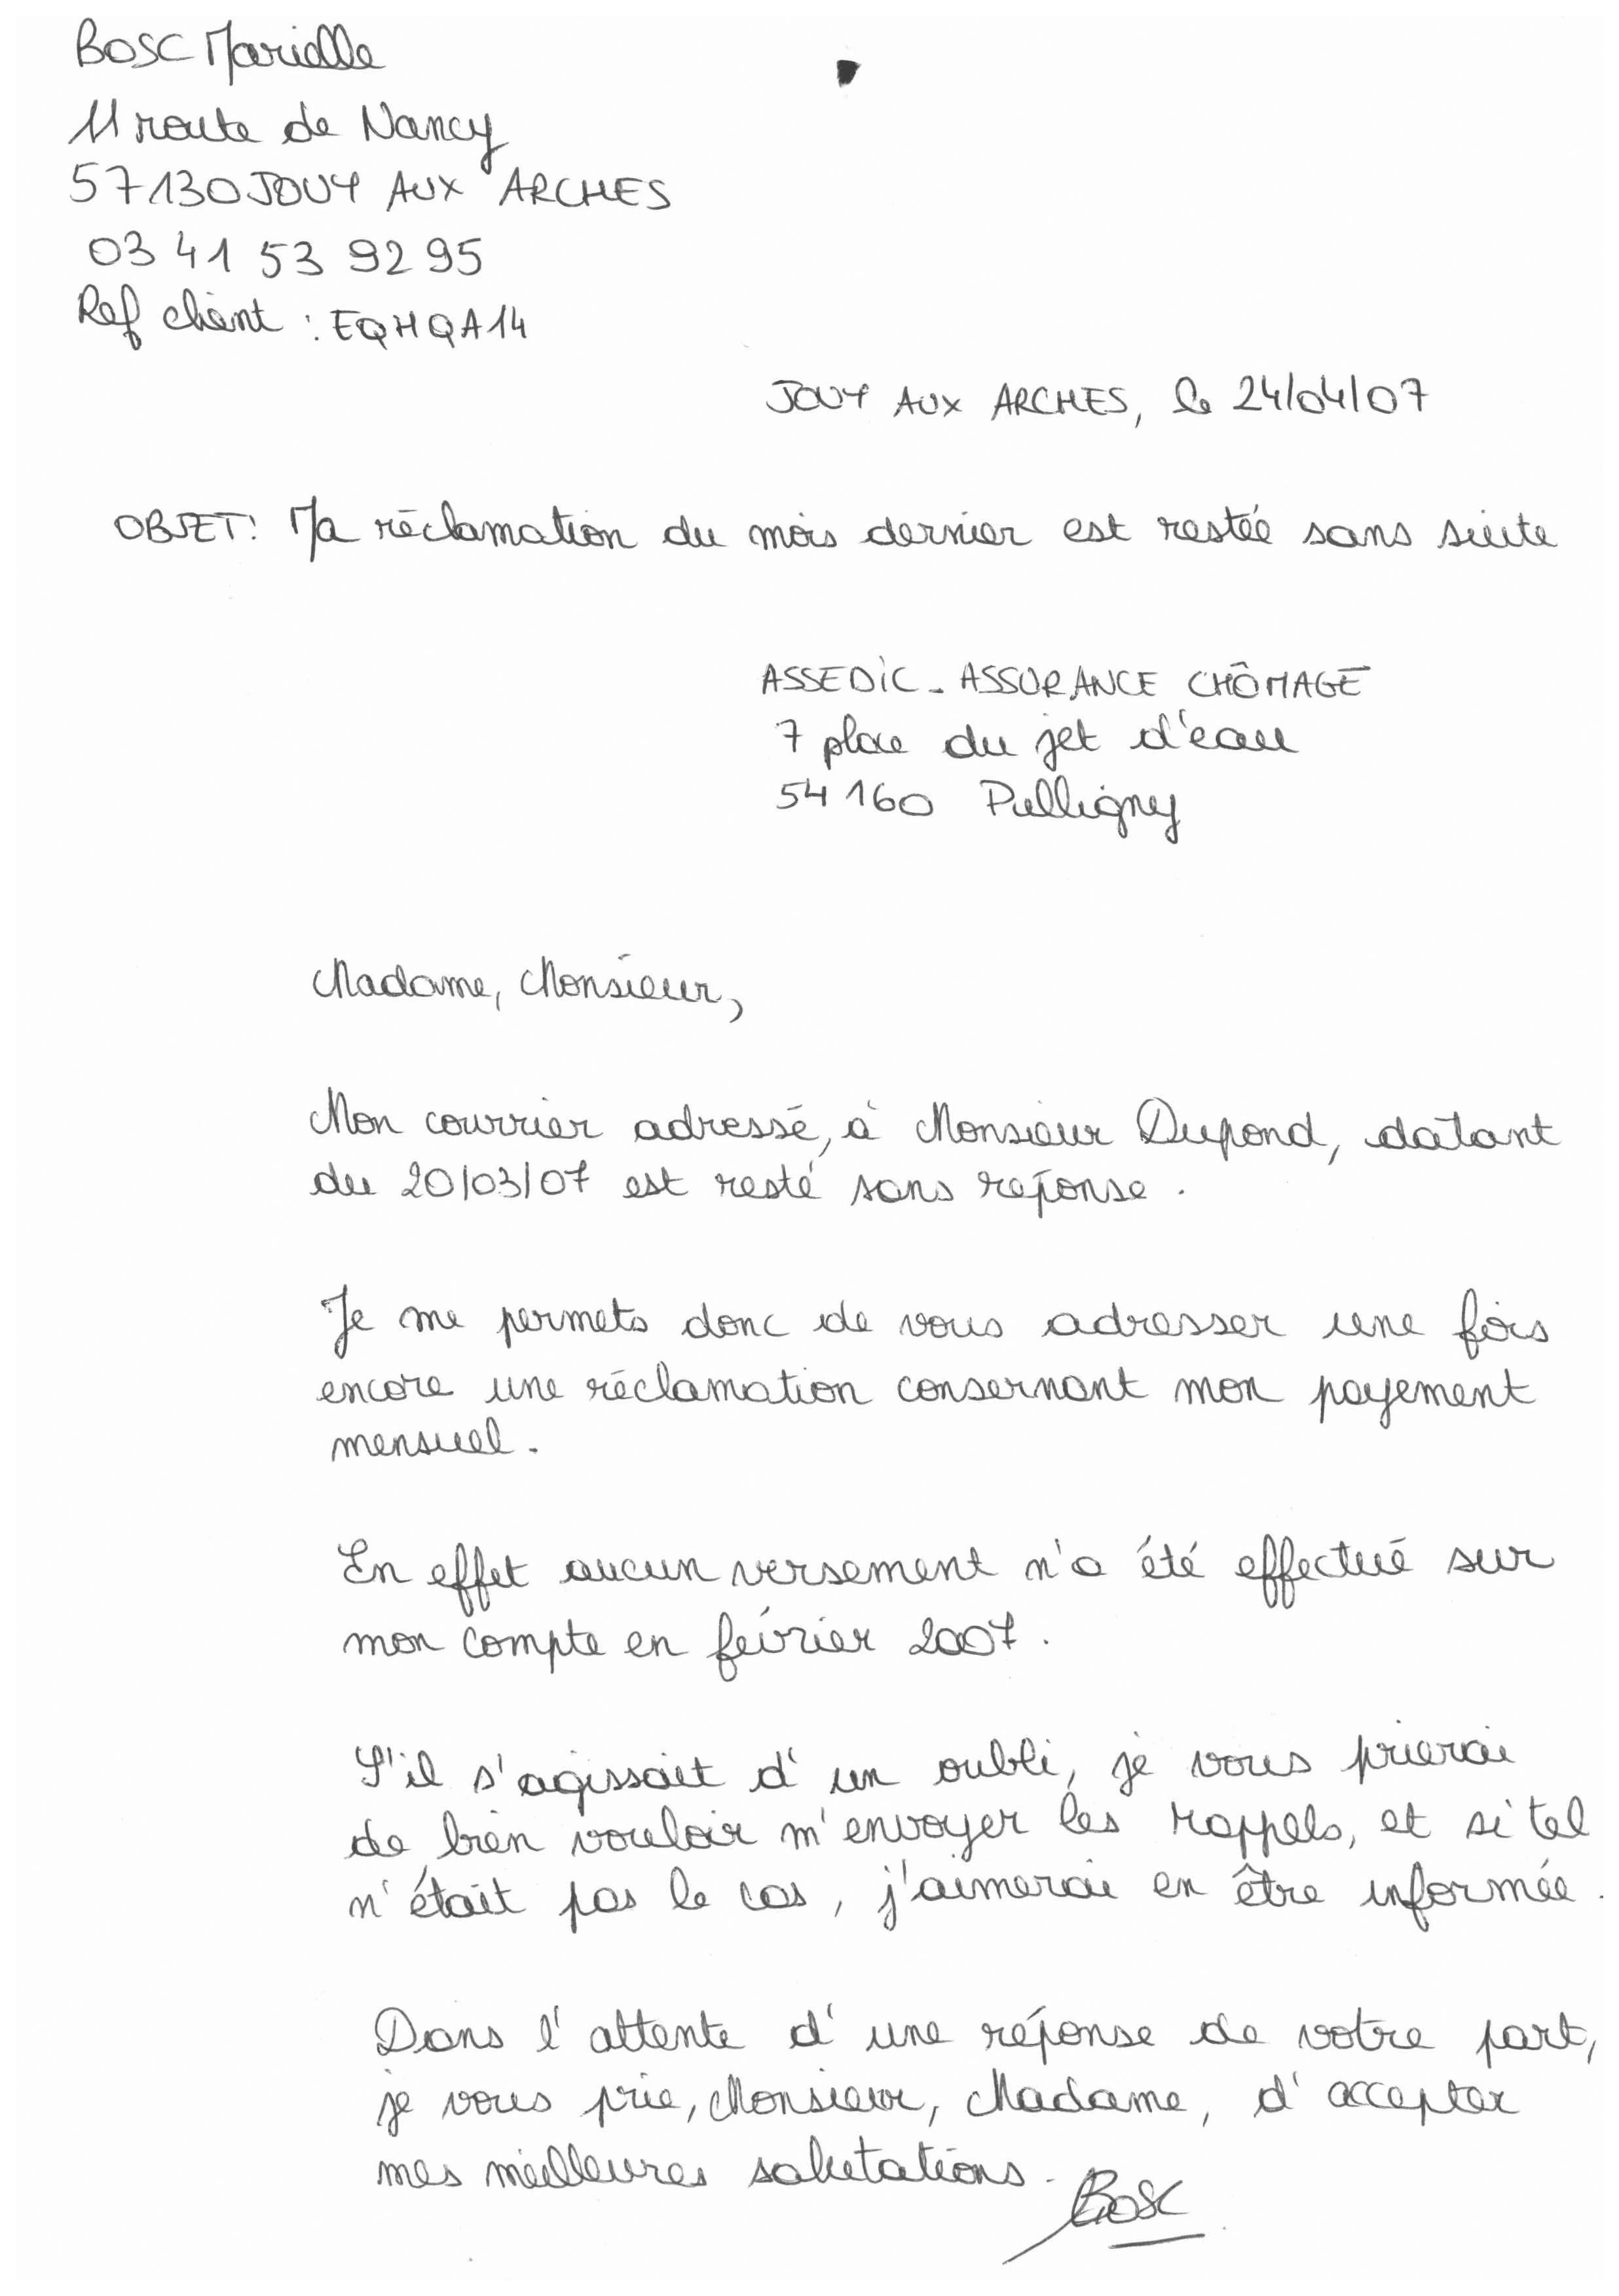 BOSC Marielle
11 route de Nancy
57130 JOUY AUX ARCHES
03 41 53 92 95
Ref client : EQHQA14
JOUY AUX ARCHES, le 24/04/07
OBJET : Ma réclamation du mois dernier est restée sans suite
ASSEDIC - ASSURANCE CHÔMAGE
7 place du jet d'eau
54160 Pulligny
Madame, Monsieur,
Mon courrier adressé, à Monsieur Dupond, datant
du 20/03/07 est resté sans réponse.
Je me permets donc de vous adresser une fois
encore une réclamation consernant mon payement
mensuel.
En effet aucun versement n'a été effectué sur
mon compte en février 2007.
S'il s'agissait d'un oubli, je vous prierai
de bien vouloir m'envoyer les rappels, et si tel
n'était pas le cas, j'aimerai en être informée.
Dans l'attente d'une réponse de votre part,
je vous prie, Monsieur, Madame, d'accepter
mes meilleures salutations.
Bosc